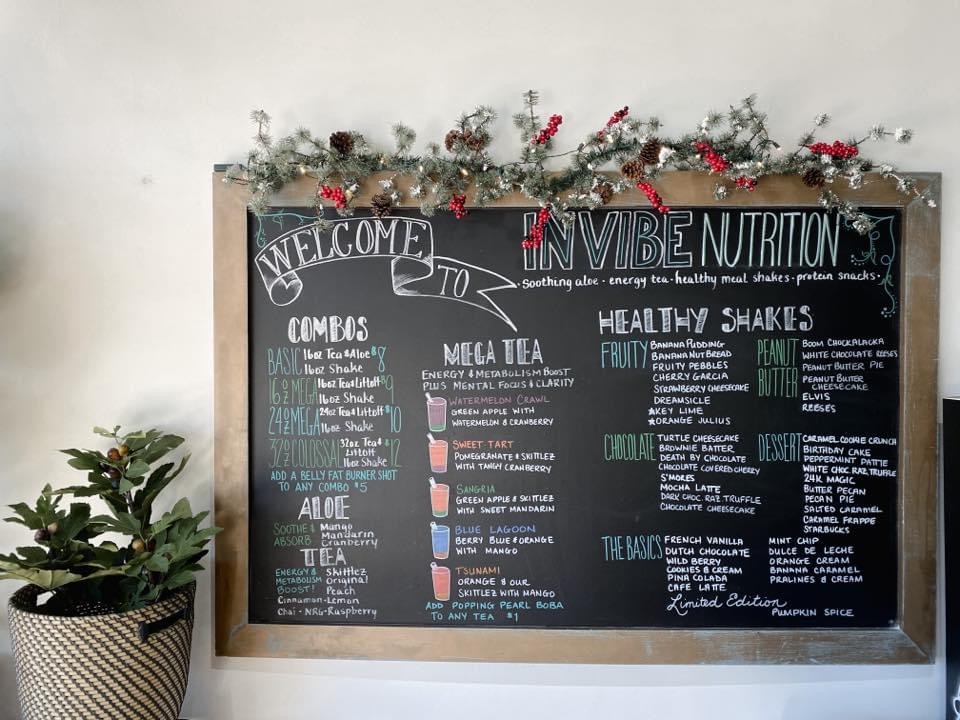 WELCOME
TO
INVIBE NUTRITION
• Soothing aloe • energy tea • healthy meal shakes • protein snacks •
COMBOS
BASIC 16oz Tea & Aloe $8
16oz Shake
16oz MEGA 16oz Tea & Liftoff $9
16oz Shake
24oz MEGA 24oz Tea & Liftoff $10
16oz Shake
32oz COLOSSAL 32oz Tea & $12
Liftoff
16oz Shake
ADD A BELLY FAT BURNER SHOT
TO ANY COMBO $5
ALOE
SOOTHE & Mango
ABSORB Mandarin
Cranberry
TEA
ENERGY & Skittlez
METABOLISM Original
BOOST! Peach
Cinnamon-Lemon
Chai - NRG-Raspberry
MEGA TEA
ENERGY & METABOLISM BOOST
PLUS MENTAL FOCUS & CLARITY
WATERMELON CRAWL
GREEN APPLE WITH
WATERMELON & CRANBERRY
SWEET-TART
POMEGRANATE & SKITTLEZ
WITH TANGY CRANBERRY
SANGRIA
GREEN APPLE & SKITTLEZ
WITH SWEET MANDARIN
BLUE LAGOON
BERRY BLUE & ORANGE
WITH MANGO
TSUNAMI
ORANGE & OUR
SKITTLEZ WITH MANGO
ADD POPPING PEARL BOBA
TO ANY TEA $1
HEALTHY SHAKES
FRUITY
BANANA PUDDING
BANANA NUT BREAD
FRUITY PEBBLES
CHERRY GARCIA
STRAWBERRY CHEESECAKE
DREAMSICLE
★KEY LIME
★ORANGE JULIUS
PEANUT
BUTTER
BOOM CHOCKALACKA
WHITE CHOCOLATE REESES
PEANUT BUTTER PIE
PEANUT BUTTER
CHEESECAKE
ELVIS
REESES
CHOCOLATE
TURTLE CHEESECAKE
BROWNIE BATTER
DEATH BY CHOCOLATE
CHOCOLATE COVERED CHERRY
S'MORES
MOCHA LATTE
DARK CHOC. RAZ TRUFFLE
CHOCOLATE CHEESECAKE
DESSERT
CARAMEL COOKIE CRUNCH
BIRTHDAY CAKE
PEPPERMINT PATTIE
WHITE CHOC. RAZ. TRUFFLE
24K MAGIC
BUTTER PECAN
PECAN PIE
SALTED CARAMEL
CARAMEL FRAPPE
STARBUCKS
THE BASICS
FRENCH VANILLA
DUTCH CHOCOLATE
WILD BERRY
COOKIES & CREAM
PINA COLADA
CAFE LATTE
MINT CHIP
DULCE DE LECHE
ORANGE CREAM
BANANA CARAMEL
PRALINES & CREAM
Limited Edition
PUMPKIN SPICE